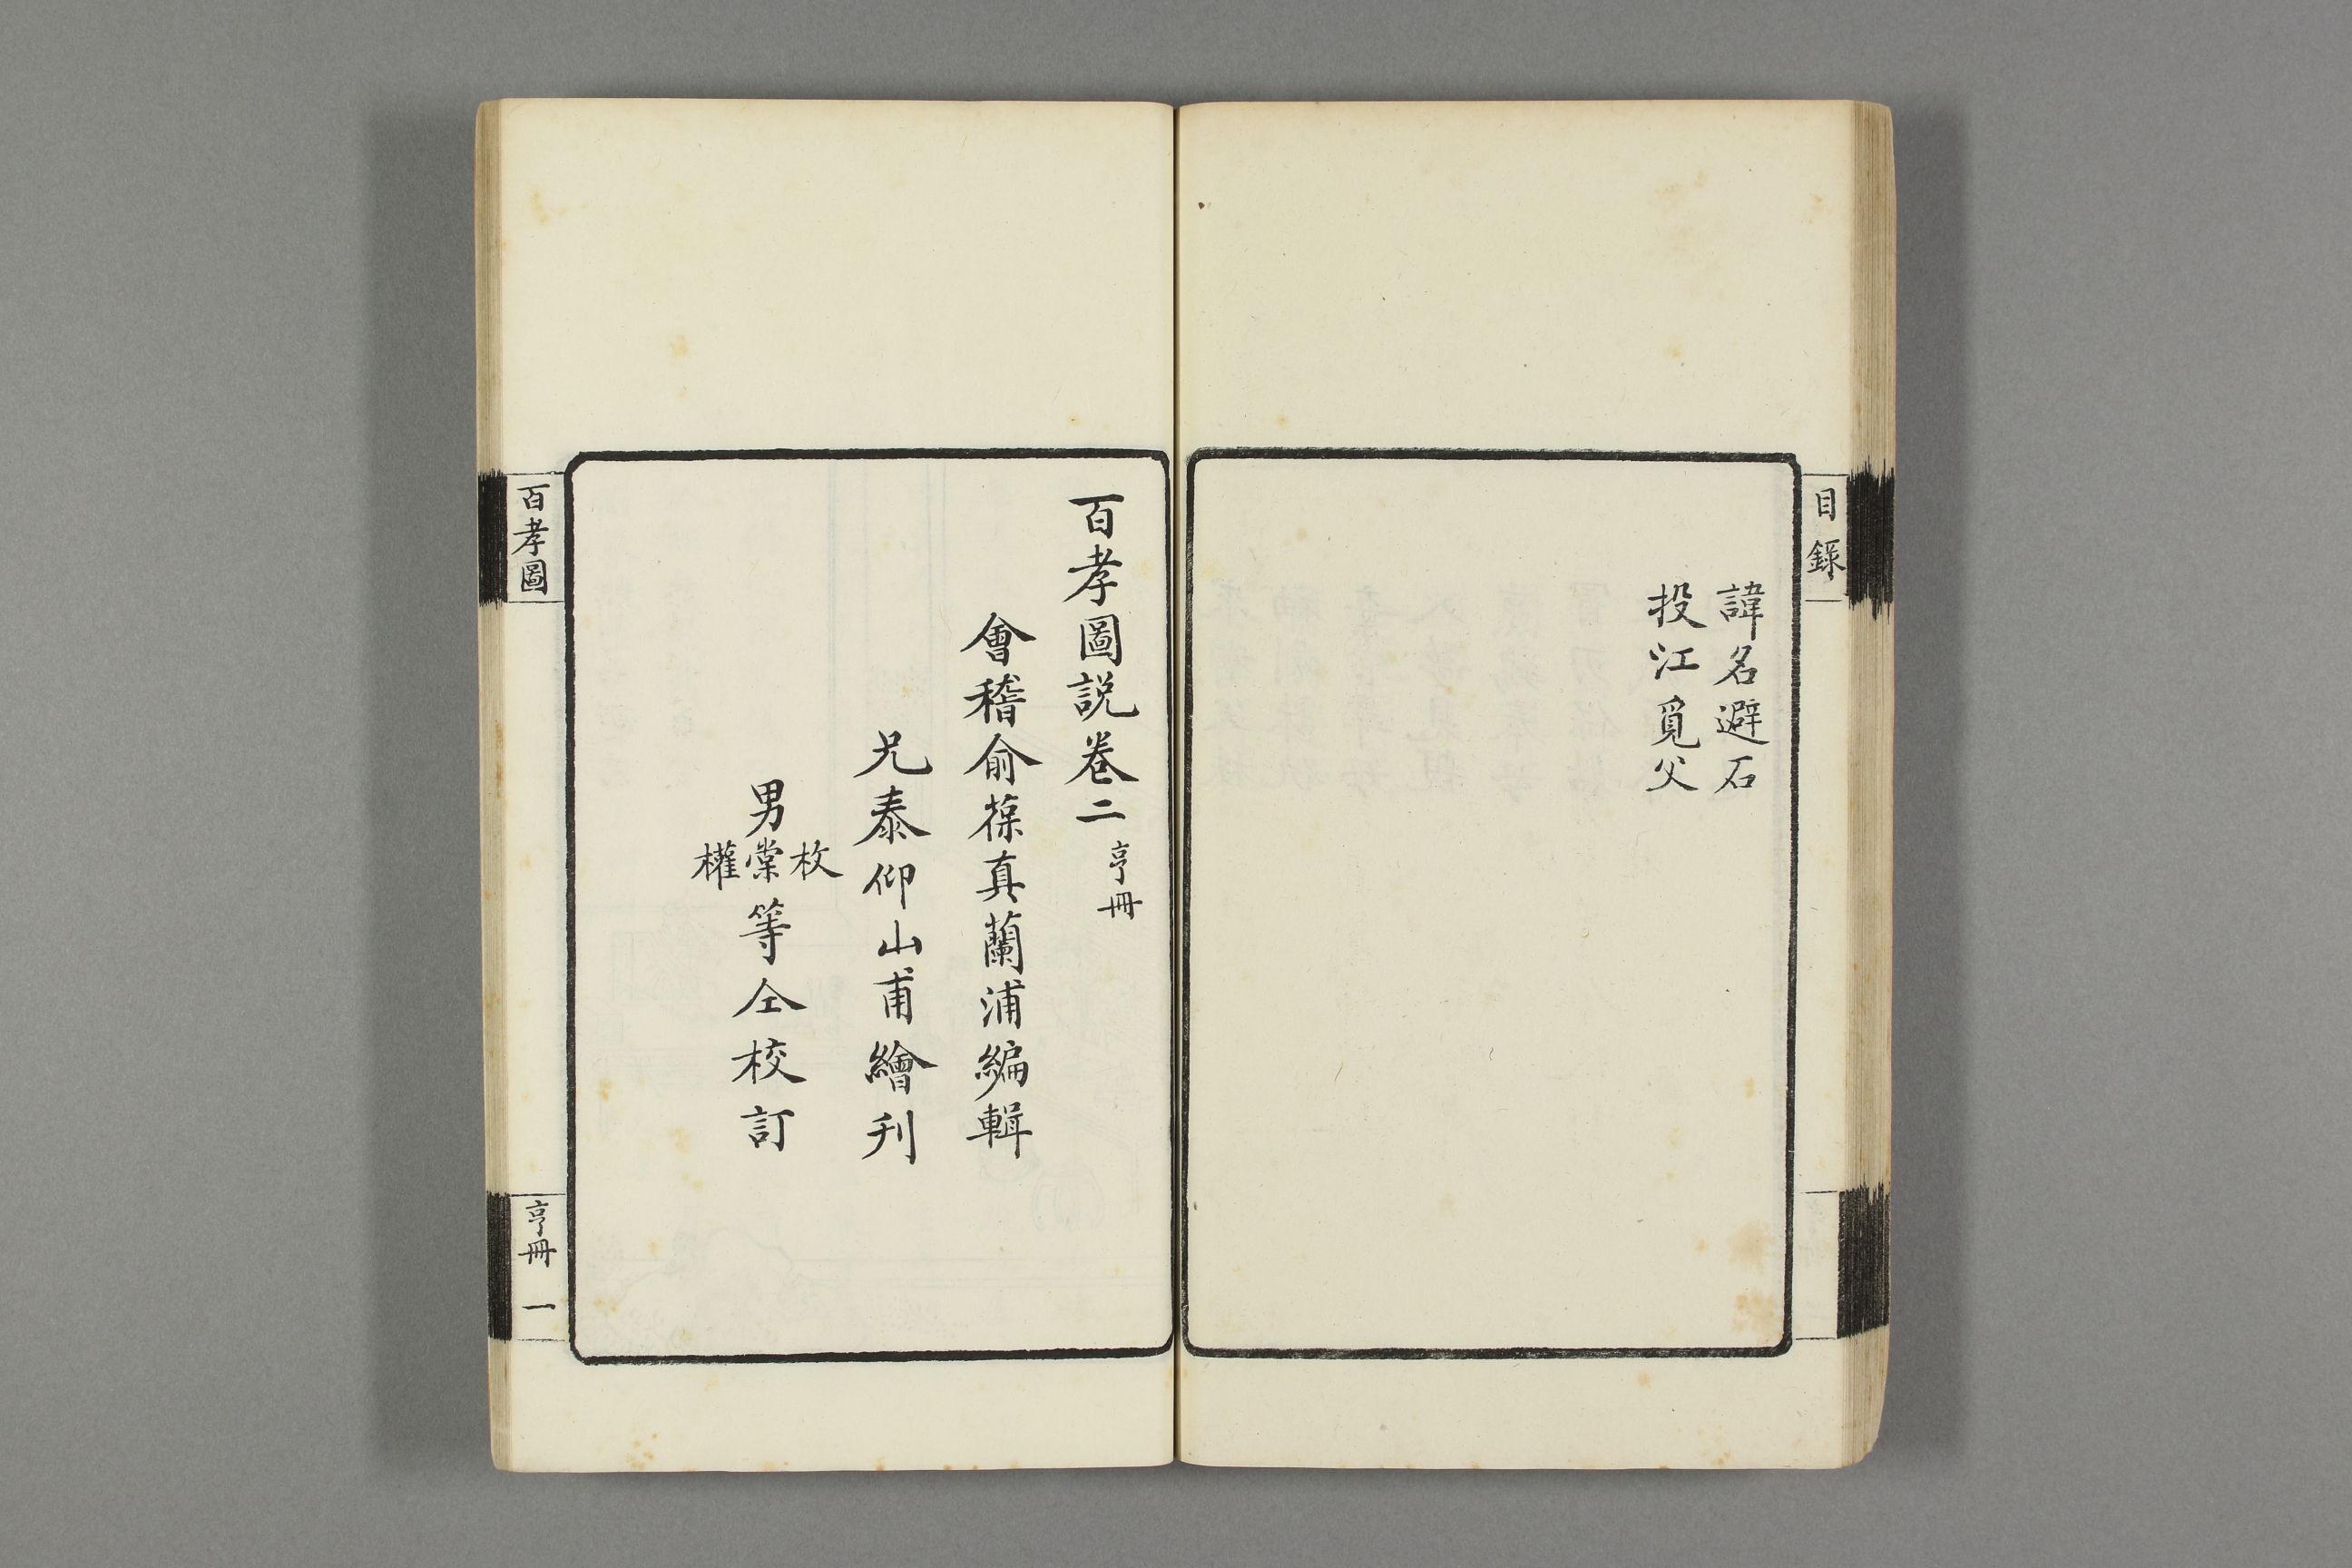 目錄
諱名避石
投江覓父
百孝圖說卷二 亨冊
會稽俞葆真蘭浦編輯
兄泰仰山甫繪刋
男枚棠權等仝校訂
百孝圖
亨冊 一